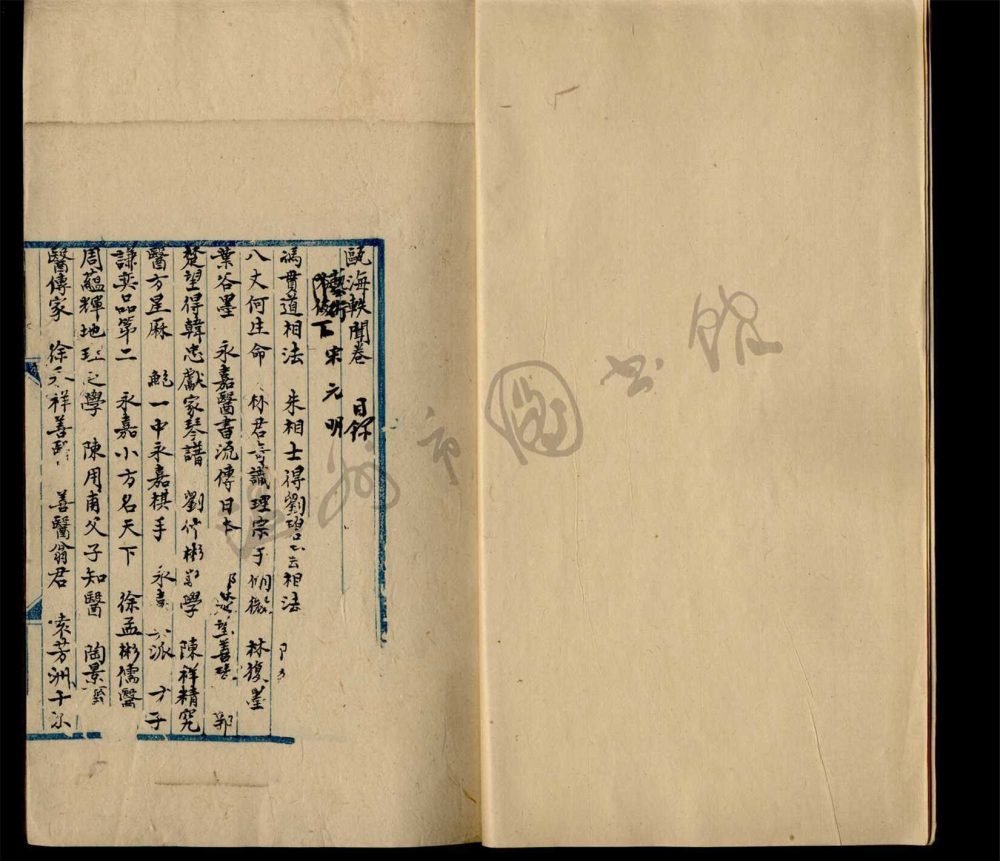 甌海軼聞卷 目錄
藝術 宋元明
馮貫道相法 朱相士得劉碧云相法
八丈何生命 林君奇識理宗于側微 林復墨
葉谷墨 永嘉醫書流傳日本 楚望善琴 鄭
楚望得韓忠獻家琴譜 劉竹彬學 陳祥精究
醫方星厤 鮑一中永嘉棋手 永嘉派 方子
謙奕品第二 永嘉小方名天下 徐孟彬儒醫
周蘊輝地理之學 陳用甫父子知醫 陶景
醫傳家 徐永祥善醫 善醫翁君 袁芳洲子
市圖書館